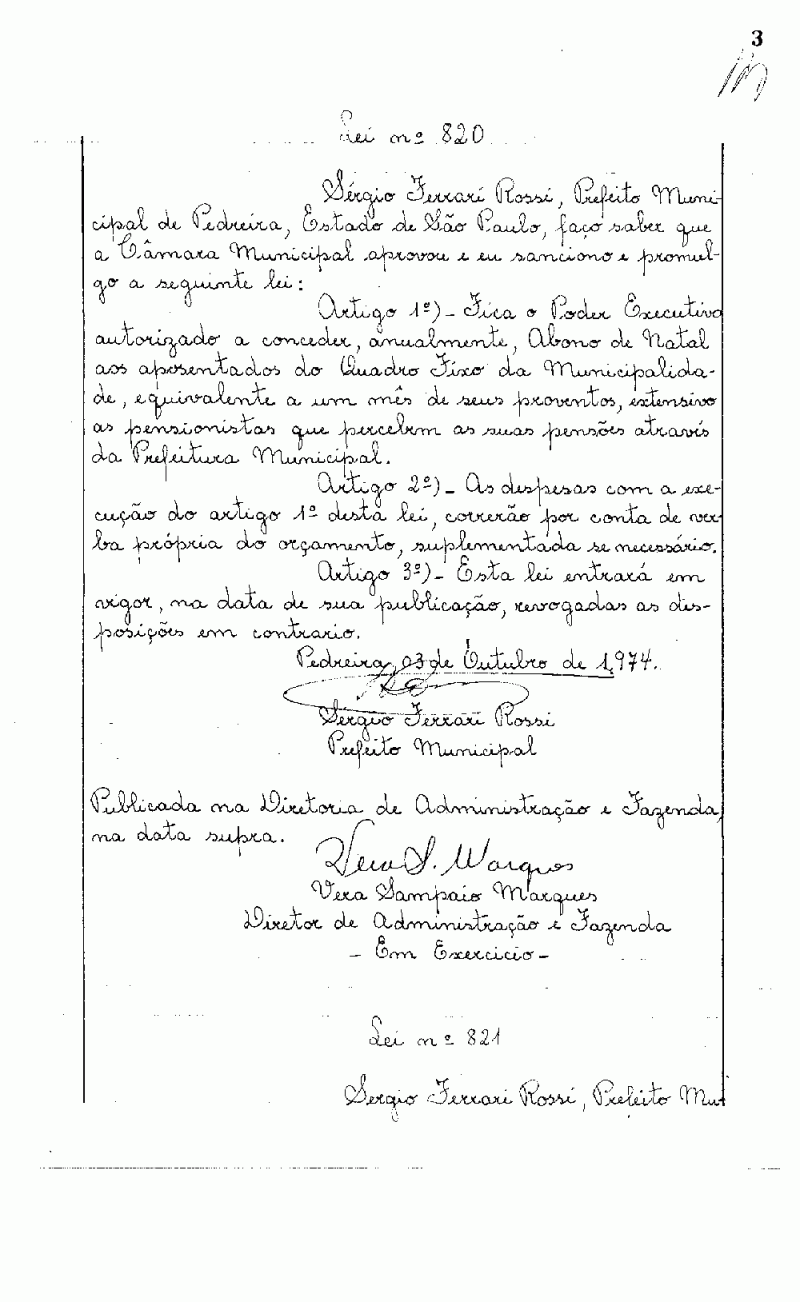 3
Lei nº 820
Sérgio Ferrari Rossi, Prefeito Muni-
cipal de Pedreira, Estado de São Paulo, faço saber que
a Câmara Municipal aprovou e eu sanciono e promul-
go a seguinte lei:
Artigo 1º)- Fica o Poder Executivo
autorizado a conceder, anualmente, Abono de Natal
aos aposentados do Quadro Fixo da Municipalida-
de, equivalente a um mês de seus proventos, extensivo
as pensionistas que percebem as suas pensões através
da Prefeitura Municipal.
Artigo 2º)- As despesas com a exe-
cução do artigo 1º desta lei, correrão por conta de ver-
ba própria do orçamento, suplementada se necessário.
Artigo 3º)- Esta lei entrará em
vigor, na data de sua publicação, revogadas as dis-
posições em contrario.
Pedreira, 03 de Outubro de 1.974.
Sérgio Ferrari Rossi
Prefeito Municipal
Publicada na Diretoria de Administração e Fazenda,
na data supra.
Vera S. Marques
Vera Sampaio Marques
Diretor de Administração e Fazenda
- Em Exercicio -
Lei nº 821
Sergio Ferrari Rossi, Prefeito Mu